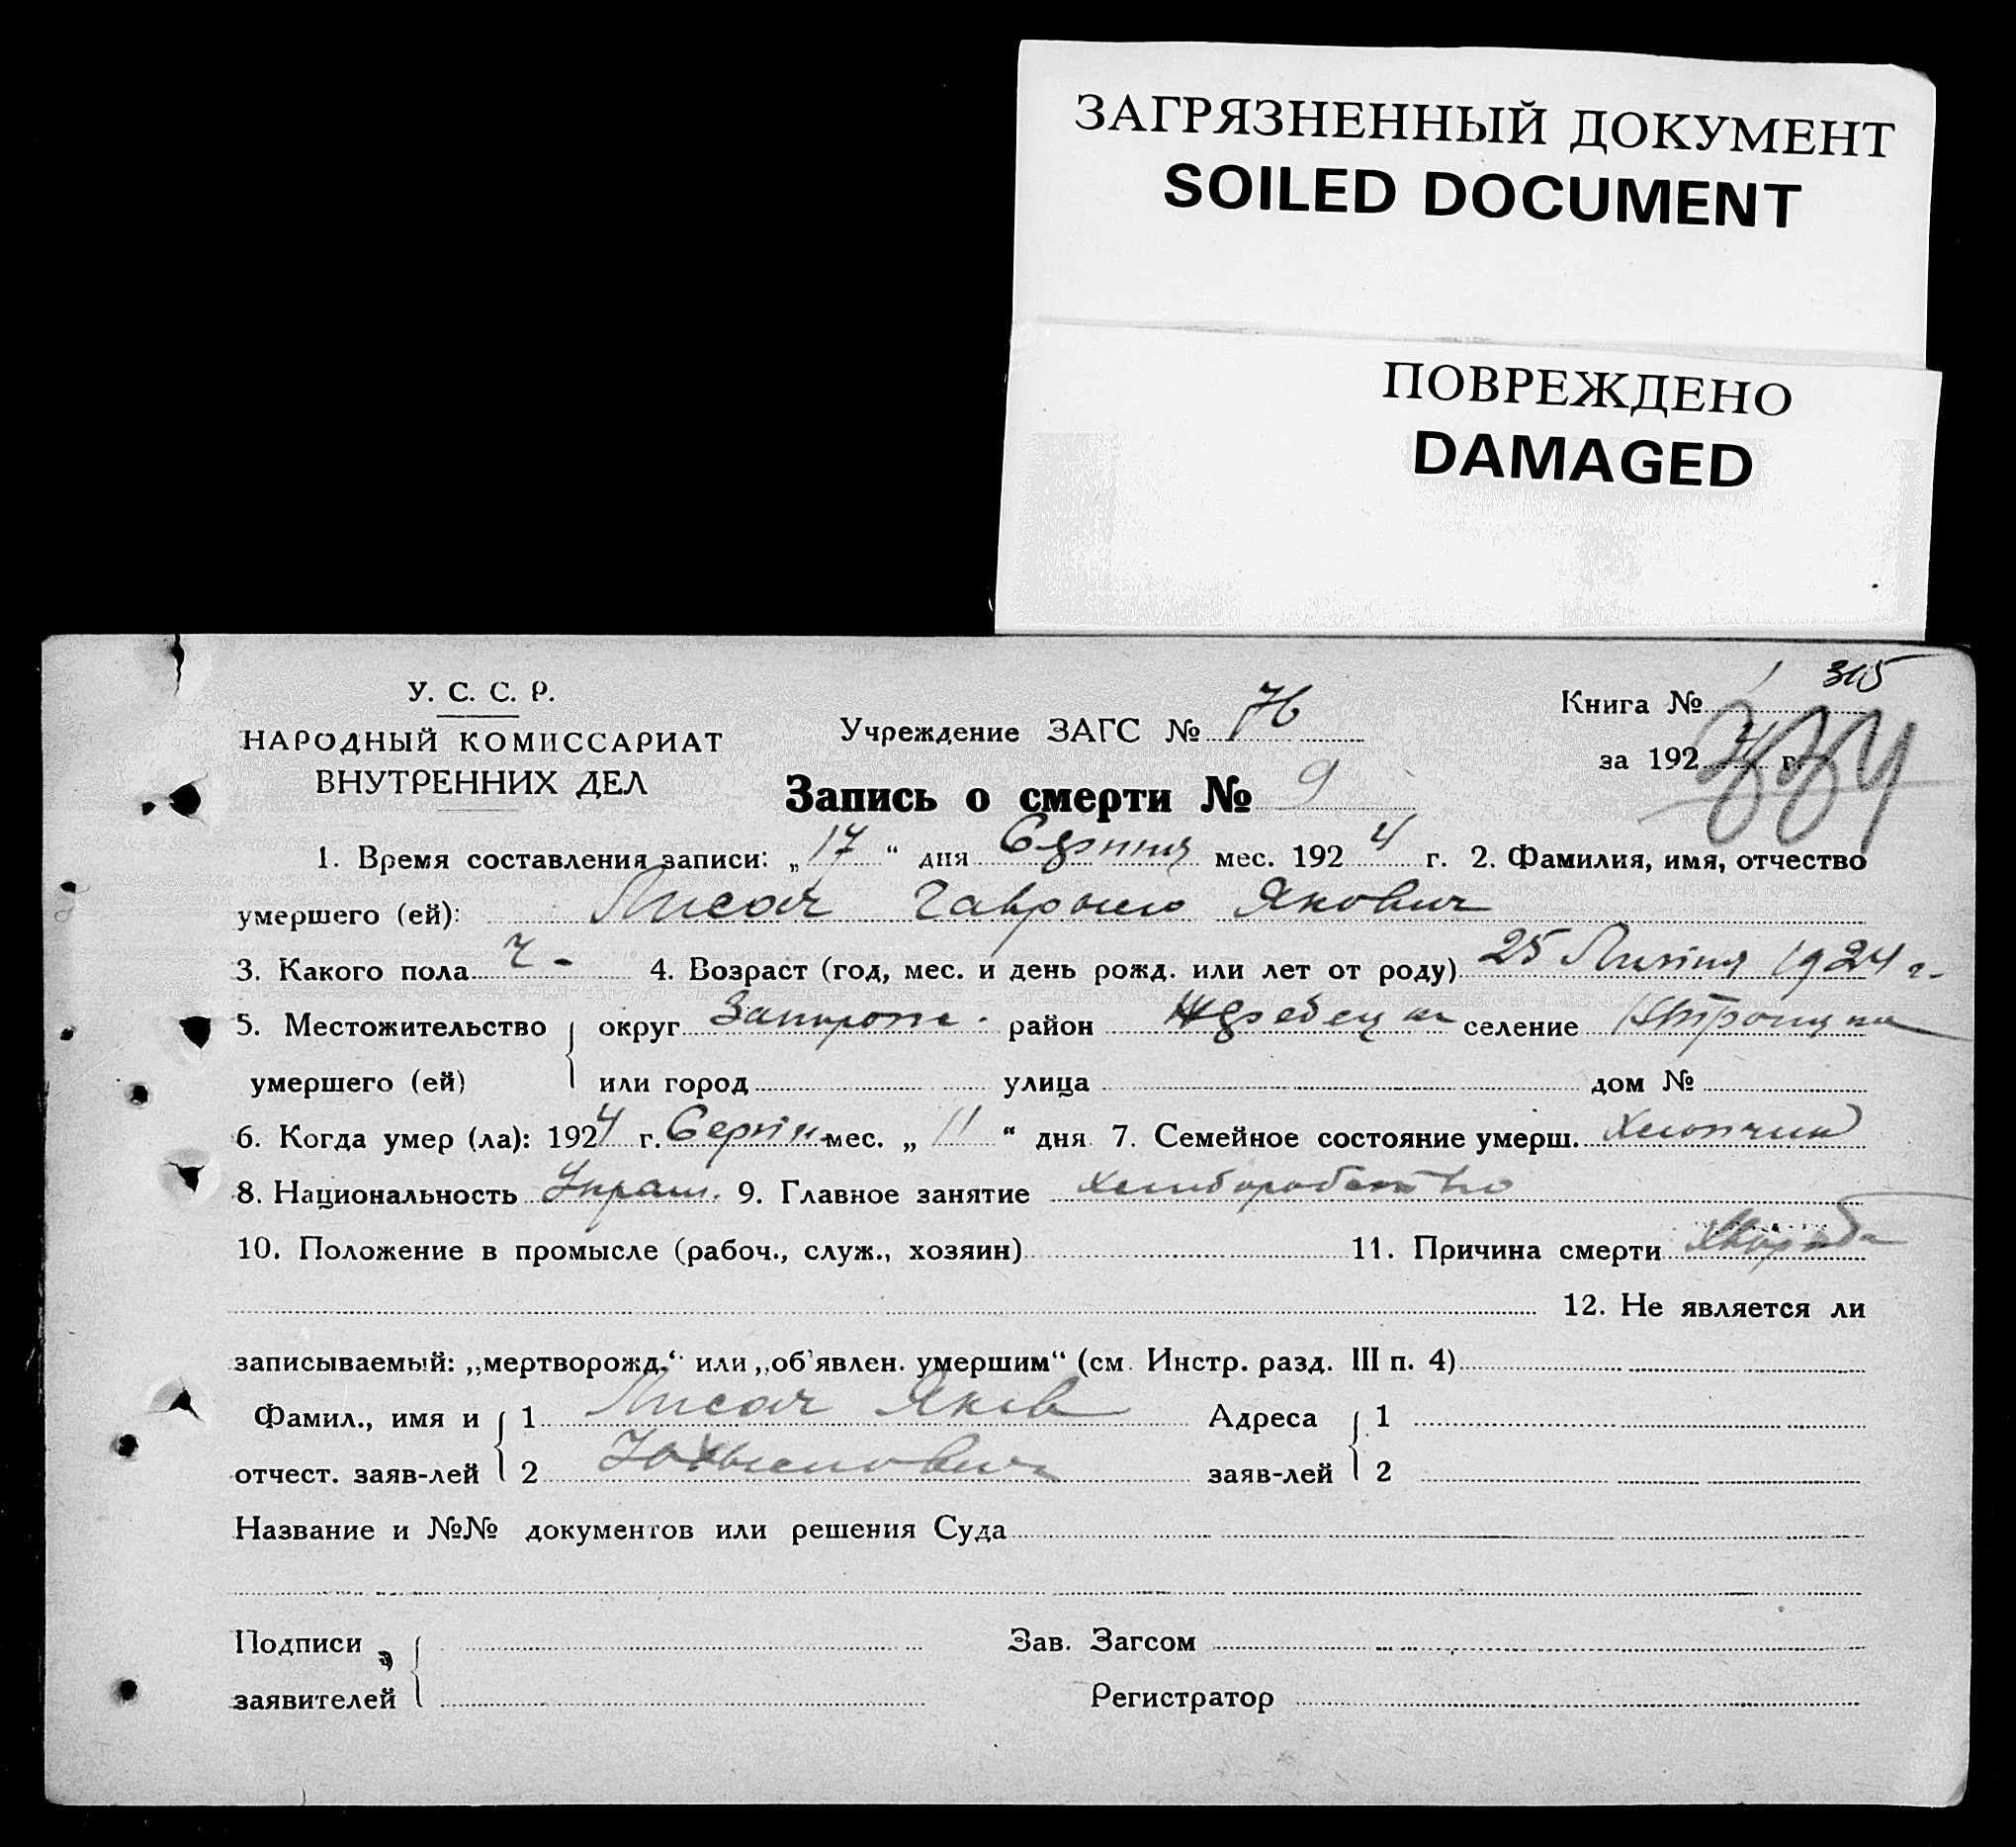 ЗАГРЯЗНЕННЫЙ ДОКУМЕНТ
SOILED DOCUMENT
ПОВРЕЖДЕНО
DAMAGED
315
У. С. С. Р.
НАРОДНЫЙ КОМИССАРИАТ
ВНУТРЕННИХ ДЕЛ
Учреждение ЗАГС №
Книга №
за 1924 г. 334
Запись о смерти № 9
1. Время составления записи: „17“ дня Серпня мес. 1924 г. 2. Фамилия, имя, отчество
умершего (ей): Лисач Гаврыло Якович
3. Какого пола ч - 4. Возраст (год, мес. и день рожд. или лет от роду) 25 Липня 1924 г.
5. Местожительство округ Запорож. район Жеребецьк селение
умершего (ей) или город улица дом №
6. Когда умер (ла): 1924 г. Серпня мес. „11“ дня 7. Семейное состояние умерш. Хлопчик
8. Национальность Украш. 9. Главное занятие хлиборобство
10. Положение в промысле (рабоч., служ., хозяин) 11. Причина смерти
12. Не является ли
записываемый: „мертворожд.“ или „об'явлен. умершим“ (см. Инстр. разд. III п. 4)
Фамил., имя и 1 Лисач Якив Адреса 1
отчест. заяв-лей 2 заяв-лей 2
Название и №№ документов или решения Суда
Подписи Зав. Загсом
заявителей Регистратор